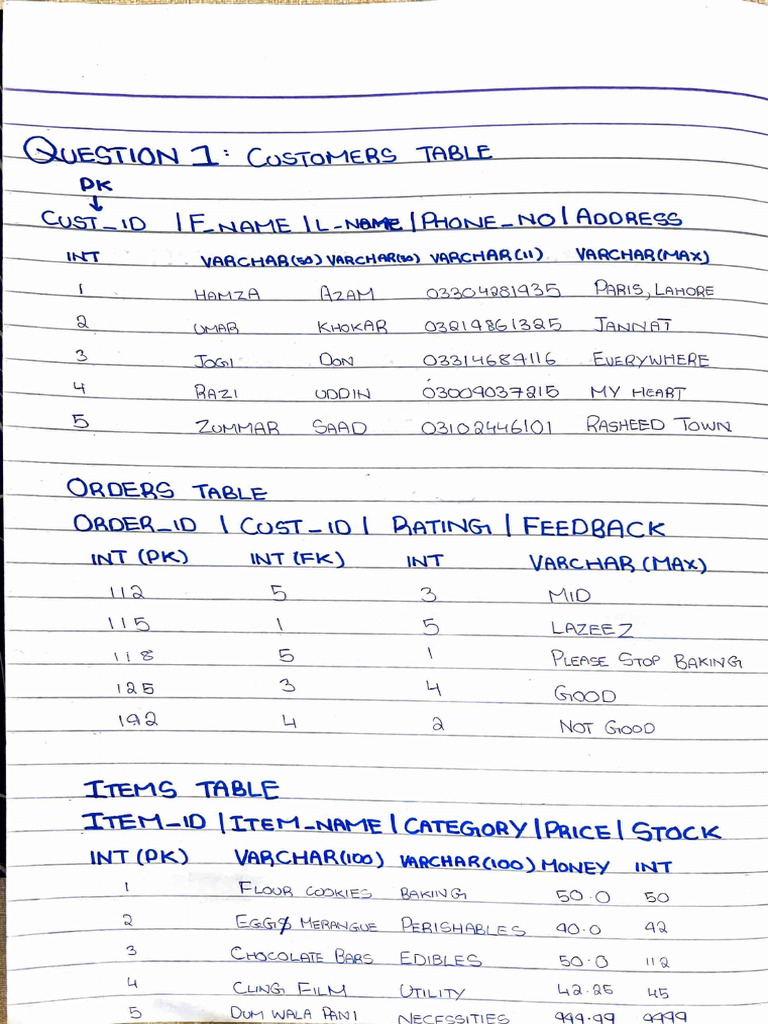 QUESTION 1: CUSTOMERS TABLE
PK
CUST_ID | F_NAME | L_NAME | PHONE_NO | ADDRESS
INT VARCHAR(50) VARCHAR(50) VARCHAR(11) VARCHAR(MAX)
1 HAMZA AZAM 03304281935 PARIS, LAHORE
2 UMAR KHOKAR 03219861325 JANNAT
3 JOGI DON 03314689116 EVERYWHERE
4 RAZI UDDIN 03009037215 MY HEART
5 ZUMMAR SAAD 03102446101 RASHEED TOWN
ORDERS TABLE
ORDER_ID | CUST_ID | RATING | FEEDBACK
INT (PK) INT (FK) INT VARCHAR (MAX)
112 5 3 MID
115 1 5 LAZEEZ
118 5 1 PLEASE STOP BAKING
125 3 4 GOOD
192 4 2 NOT GOOD
ITEMS TABLE
ITEM_ID | ITEM_NAME | CATEGORY | PRICE | STOCK
INT (PK) VARCHAR(100) VARCHAR(100) MONEY INT
1 FLOUR COOKIES BAKING 50.0 50
2 EGG MERANGUE PERISHABLES 90.0 92
3 CHOCOLATE BARS EDIBLES 50.0 112
4 CLING FILM UTILITY 42.25 45
5 DUM WALA PANI NECESSITIES 999.99 9999